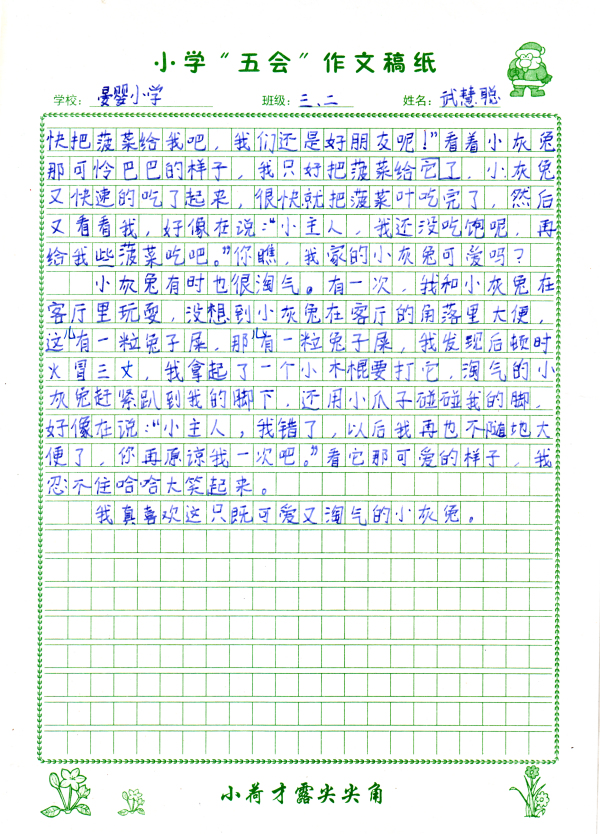 小学“五会”作文稿纸
学校：晏婴小学 班级：三、二 姓名：武慧聪
快把菠菜给我吧，我们还是好朋友呢！”看着小灰兔
那可怜巴巴的样子，我只好把菠菜给它了，小灰兔
又快速的吃了起来，很快就把菠菜叶吃完了，然后
又看看我，好像在说：“小主人，我还没吃饱呢，再
给我些菠菜吃吧。”你瞧，我家的小灰兔可爱吗？
小灰兔有时也很淘气。有一次，我和小灰兔在
客厅里玩耍，没想到小灰兔在客厅的角落里大便，
这儿有一粒兔子屎，那儿有一粒兔子屎，我发现后顿时
火冒三丈，我拿起了一个小木棍要打它，淘气的小
灰兔赶紧趴到我的脚下，还用小爪子碰碰我的脚，
好像在说：“小主人，我错了，以后我再也不随地大
便了，你再原谅我一次吧。”看它那可爱的样子，我
忍不住哈哈大笑起来。
我真喜欢这只既可爱又淘气的小灰兔。
小荷才露尖尖角